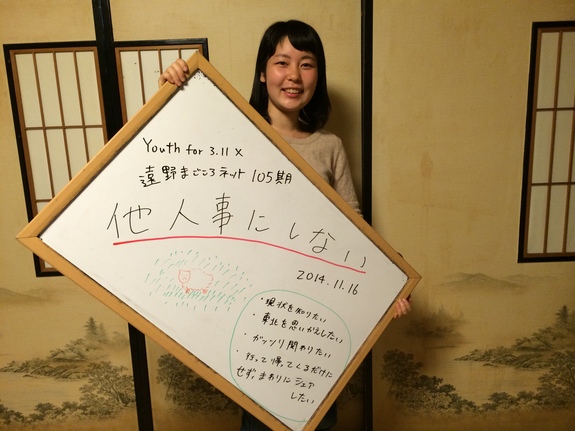 Youth for 3.11 ×
遠野まごころネット 105期
他人事にしない
2014.11.16
・現状を知りたい
・東北を思いかえしたい
・ガッツリ関わりたい
・行って帰ってくるだけに
せず、まわりにシェア
したい